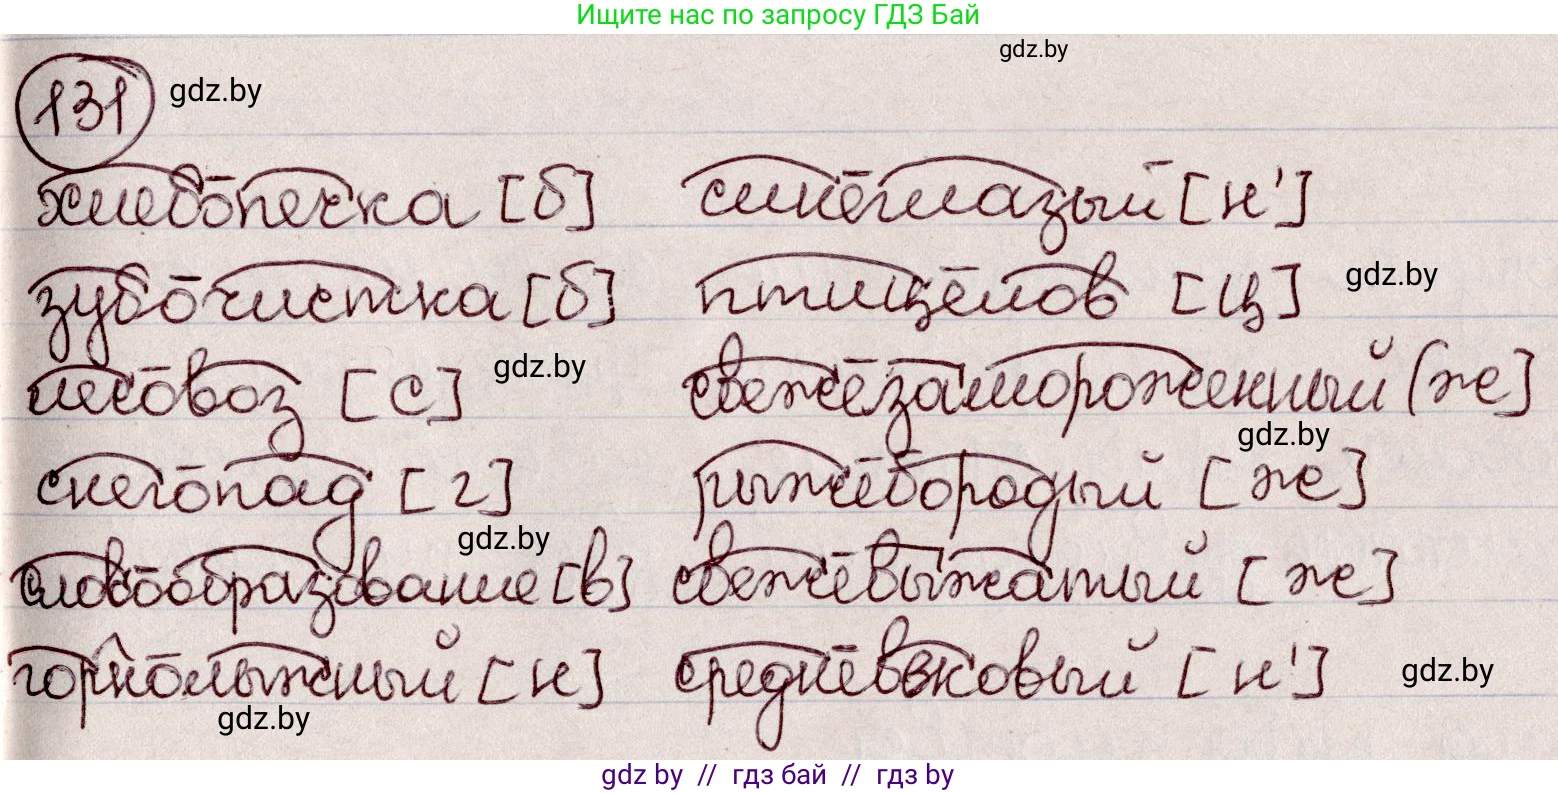 Ищите нас по запросу ГДЗ Бай
gdz.by
131 gdz.by
хлебопечка [б] синеглазый [н']
зубочистка [б] птицелов [ц] gdz.by
лесовоз [с] gdz.by свежезамороженный [ж]
gdz.by
снегопад [г] рыжебородый [ж]
gdz.by
словообразование [в] свежевыжатый [ж]
горнолыжный [н] средневековый [н'] gdz.by
gdz.by
gdz by // гдз бай // гдз by